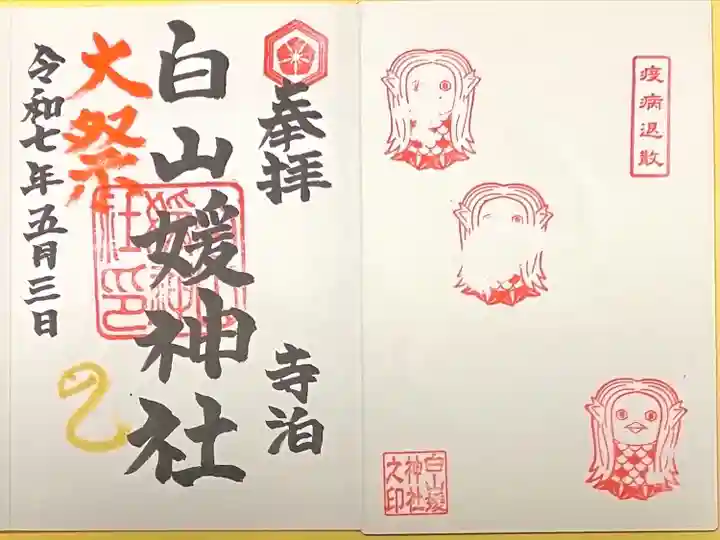 疫病退散
白山媛
神社
之印
奉拝
寺泊
白山媛神社
大祭
令和七年五月三日